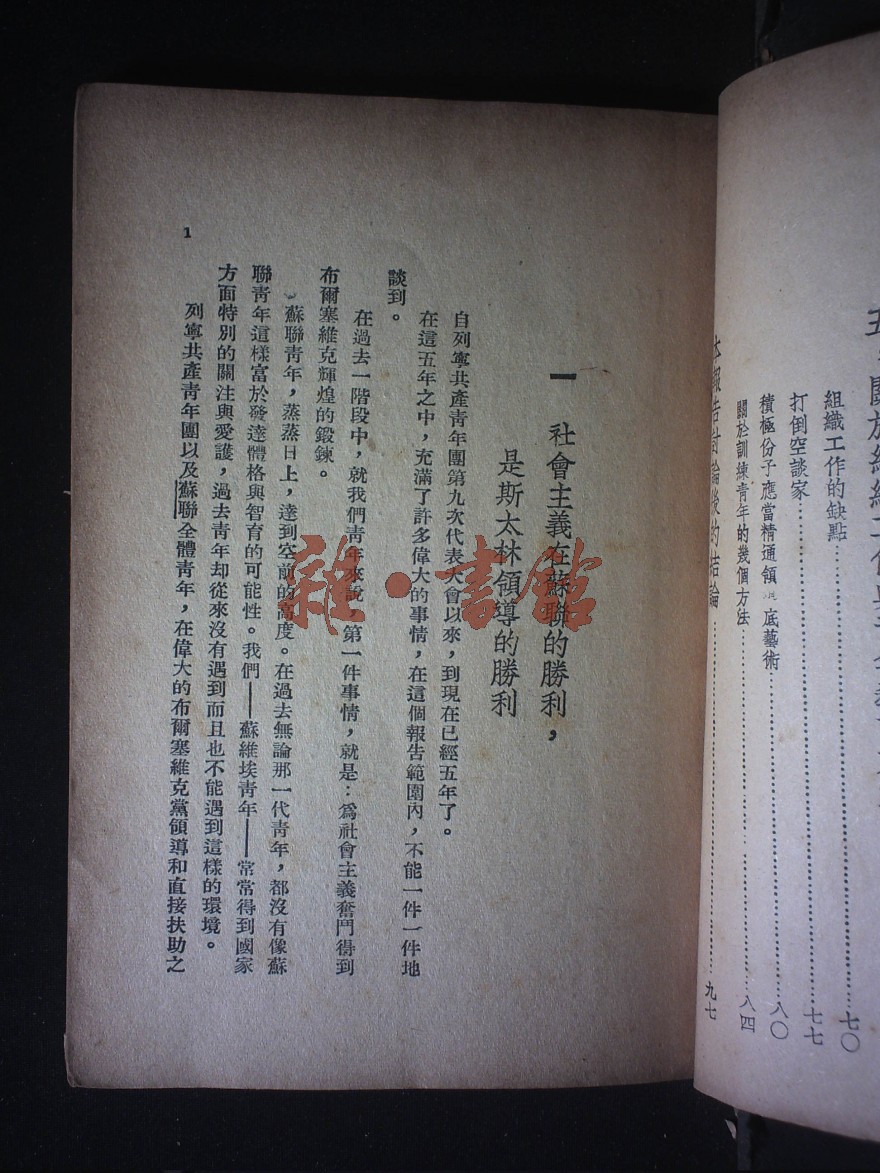 組織工作的缺點……七〇
打倒空談家……七七
積極份子應當精通領 底藝術……八〇
關於訓練青年的幾個方法……八四
本報告討論後的結論……九七
一 社會主義在蘇聯的勝利，
是斯太林領導的勝利
自列寧共產青年團第九次代表大會以來，到現在已經五年了。
在這五年之中，充滿了許多偉大的事情，在這個報告範圍內，不能一件一件地
談到。
在過去一階段中，就我們青年來說，第一件事情，就是：爲社會主義奮鬥得到
布爾塞維克輝煌的鍛鍊。
蘇聯青年，蒸蒸日上，達到空前的高度。在過去無論那一代青年，都沒有像蘇
聯青年這樣富於發達體格與智育的可能性。我們——蘇維埃青年——常常得到國家
方面特別的關注與愛護，過去青年却從來沒有遇到而且也不能遇到這樣的環境。
列寧共產青年團以及蘇聯全體青年，在偉大的布爾塞維克黨領導和直接扶助之
1
雜·書館